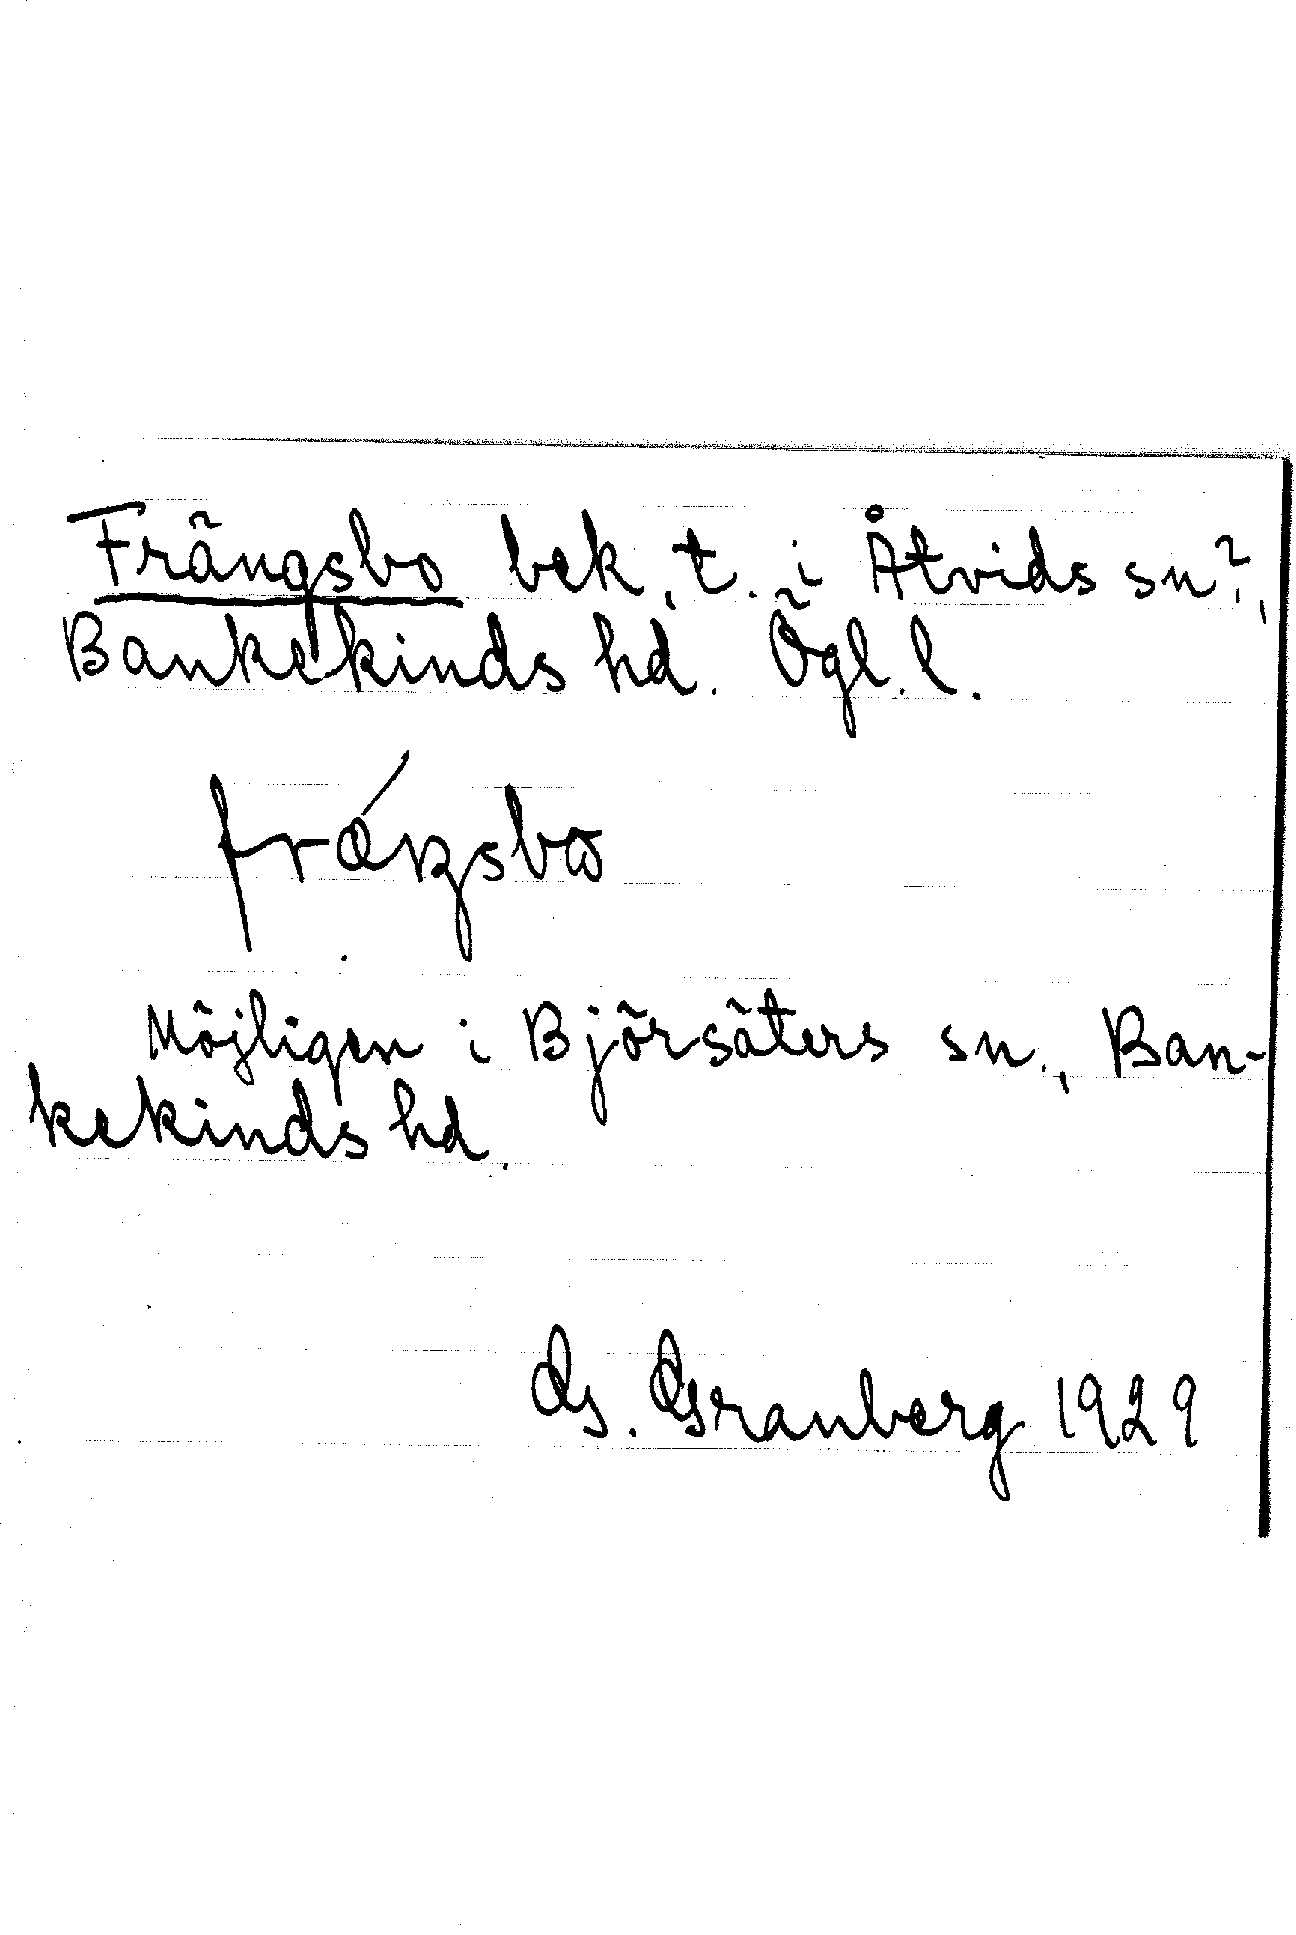 Frängsbo bek. t. i Åtvids sn?,
Bankekinds hd. Ögl. l.
Möjligen i Björsäters sn., Ban-
kekinds hd.
G. Granberg 1929